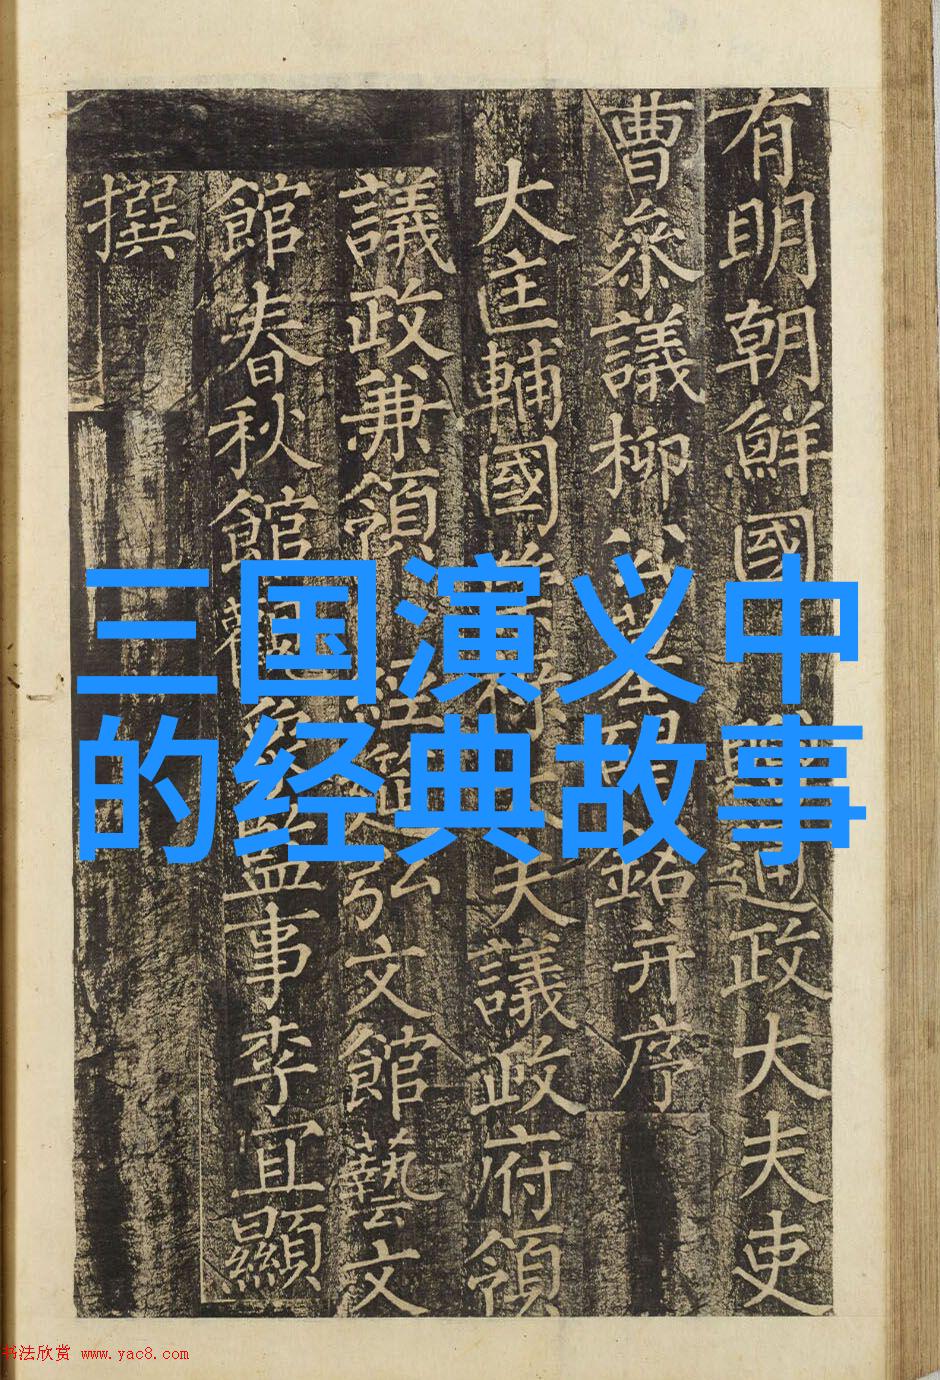 有明朝鮮國 通政大夫吏
曹參議柳公墓 銘并序
大匡輔國崇祿大夫議政府領
議政兼領 經筵弘文館藝文
館春秋館觀象監事李宜顯
撰
三国演义中
的经典故事
书法欣赏 www.yac8.com